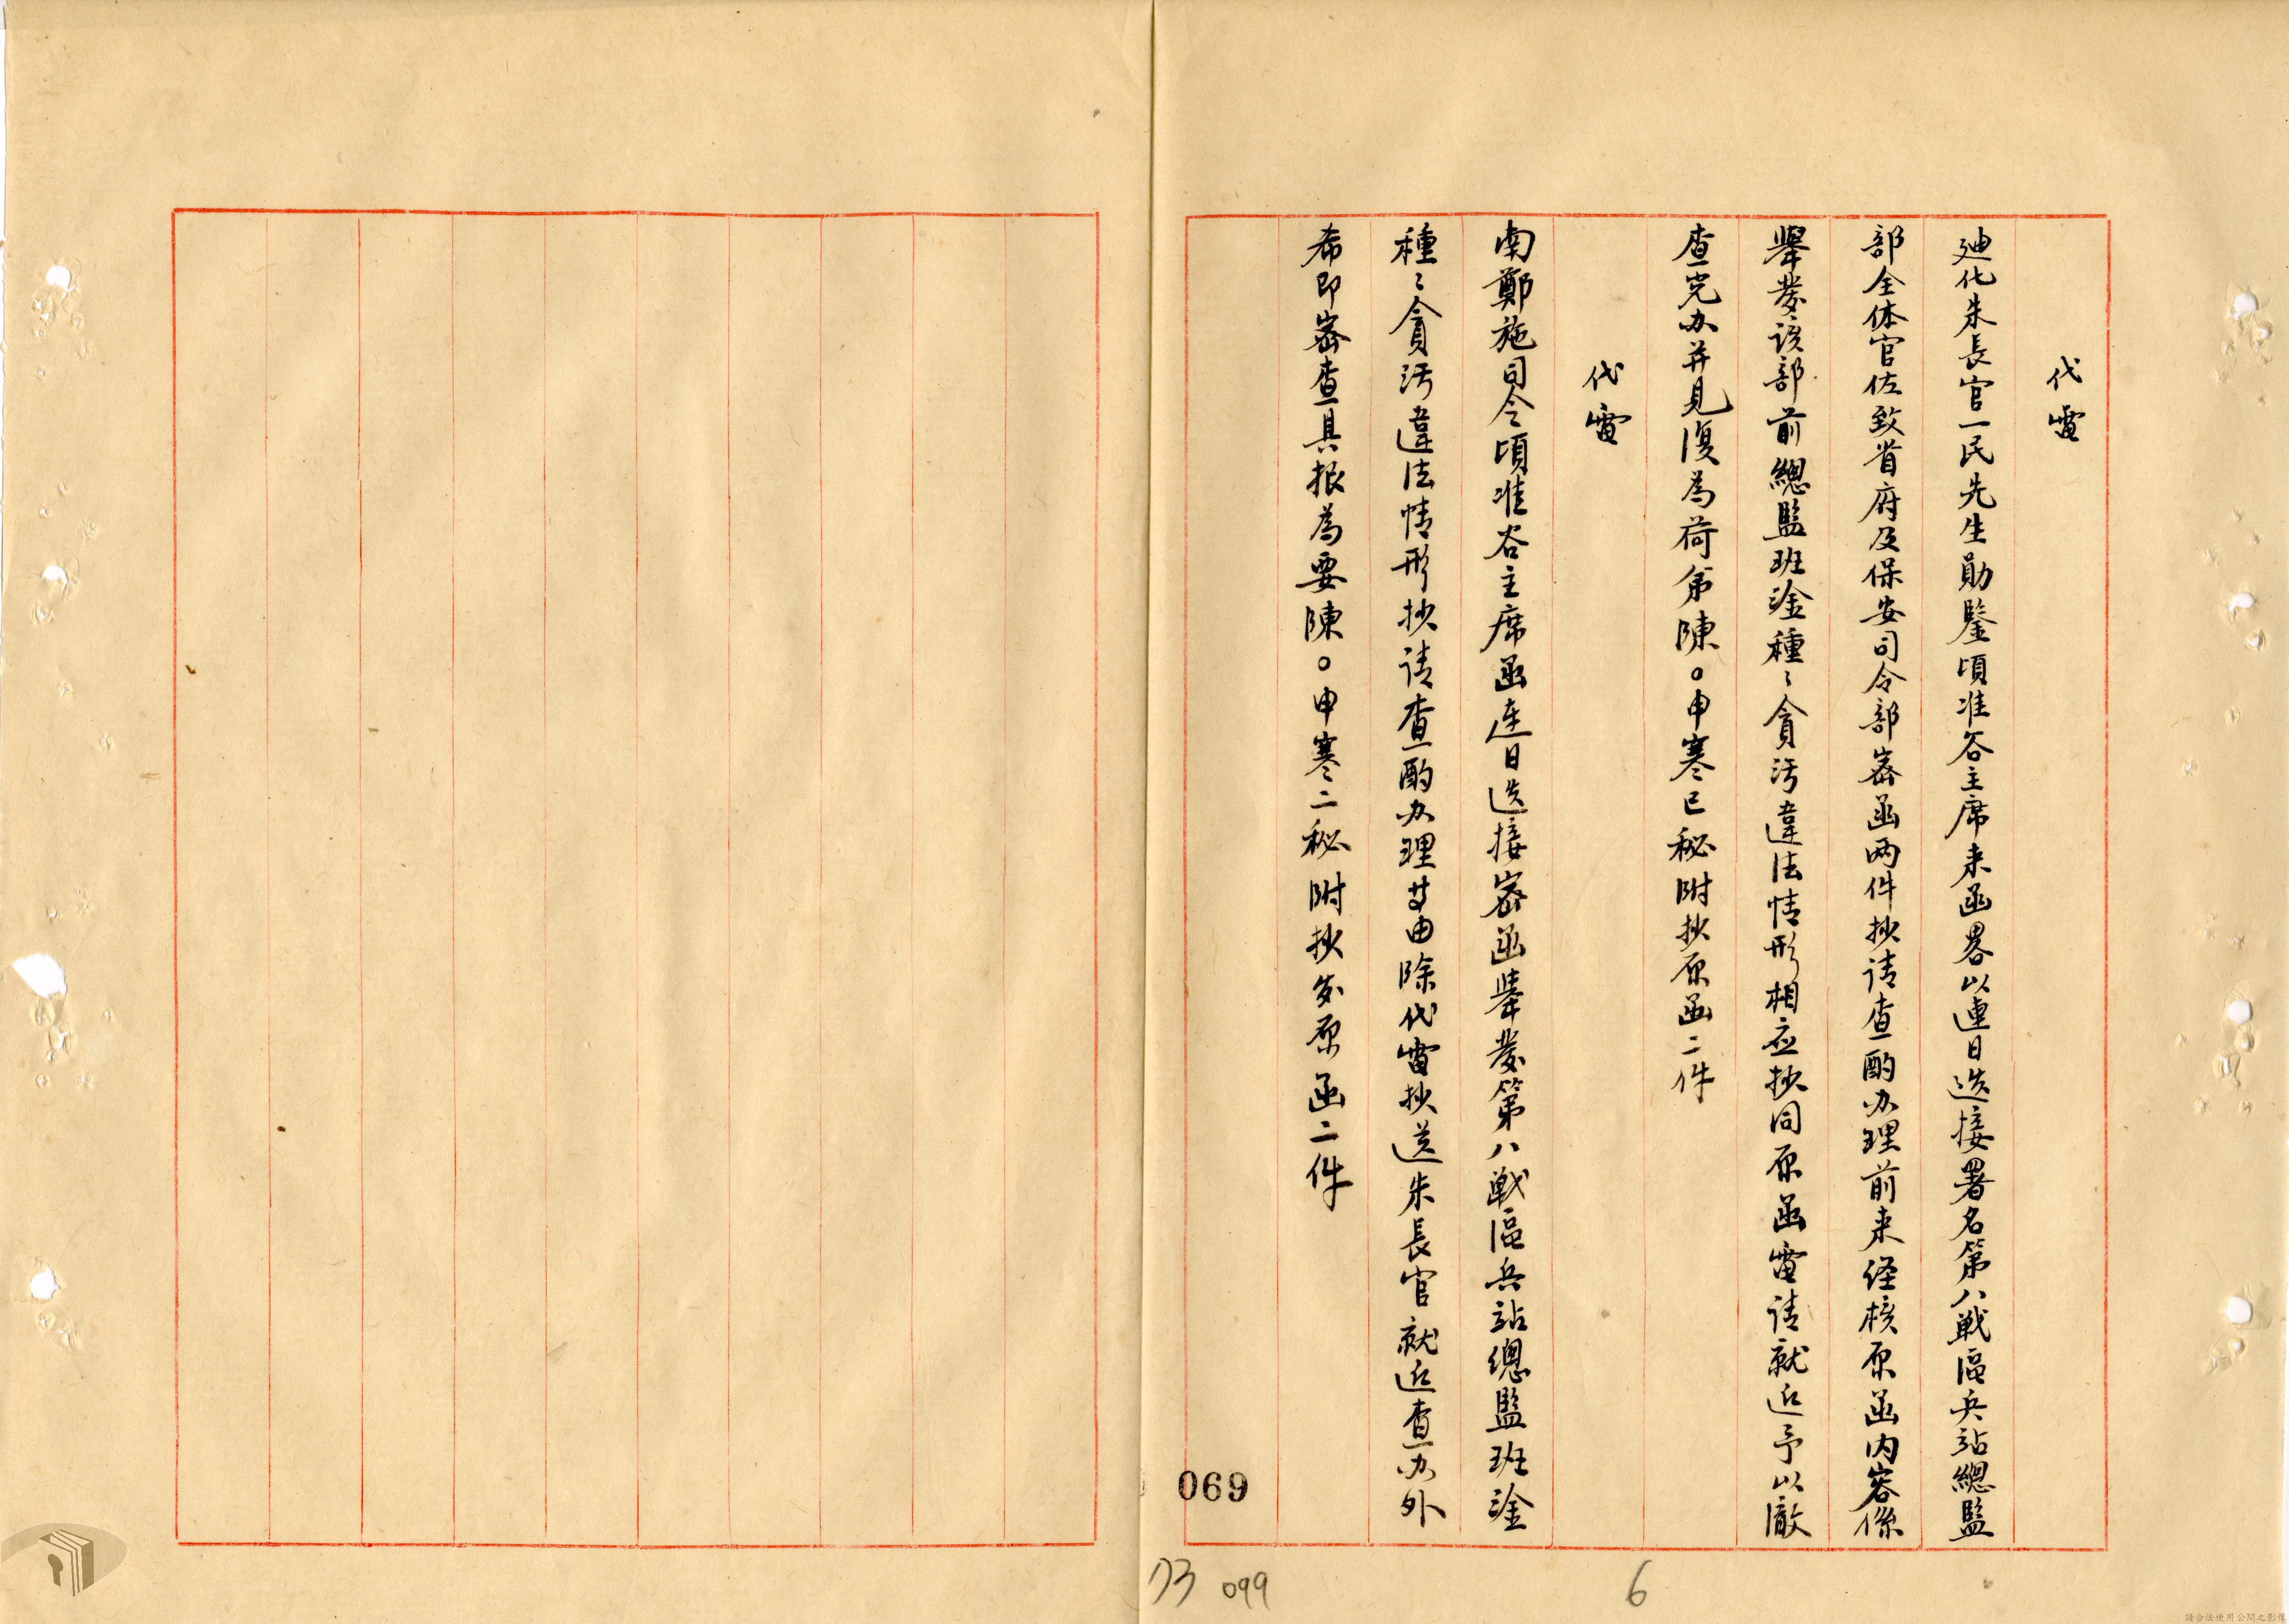 代電
迪化朱長官一民先生勛鑒頃准谷主席來函畧以連日迭接署名第八戰區兵站總監
部全体官佐致省府及保安司令部密函兩件抄請查酌办理前來经核原函内容係
舉發该部前總監班淦種〻貪污違法情形相应抄同原函電请就近予以澈
查究办并見復為荷弟陳○申寒已秘附抄原函二件
代電
南鄭施司令頃准谷主席函連日迭接密函舉發第八戰區兵站總監班淦
種〻貪污違法情形抄请查酌办理等由除代電抄送朱長官就近查办外
希即密查具报為要陳○申寒二秘附抄发原函二件
069
73 099
6
請合法使用公開之影像